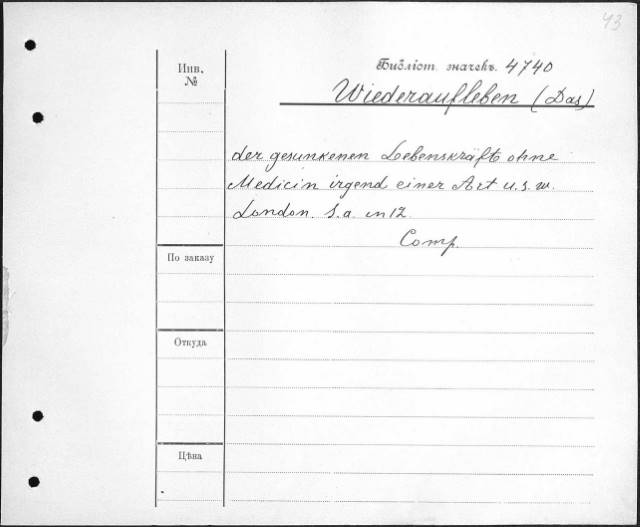 43
Инв. №
Библіот. значекъ. 4740
Wiederaufleben (Das)
der gesunkenen Lebenskräfte ohne
Medicin irgend einer Art u.s.w.
London. S.a. in 12.
Comp.
По заказу
Откуда
Цѣна